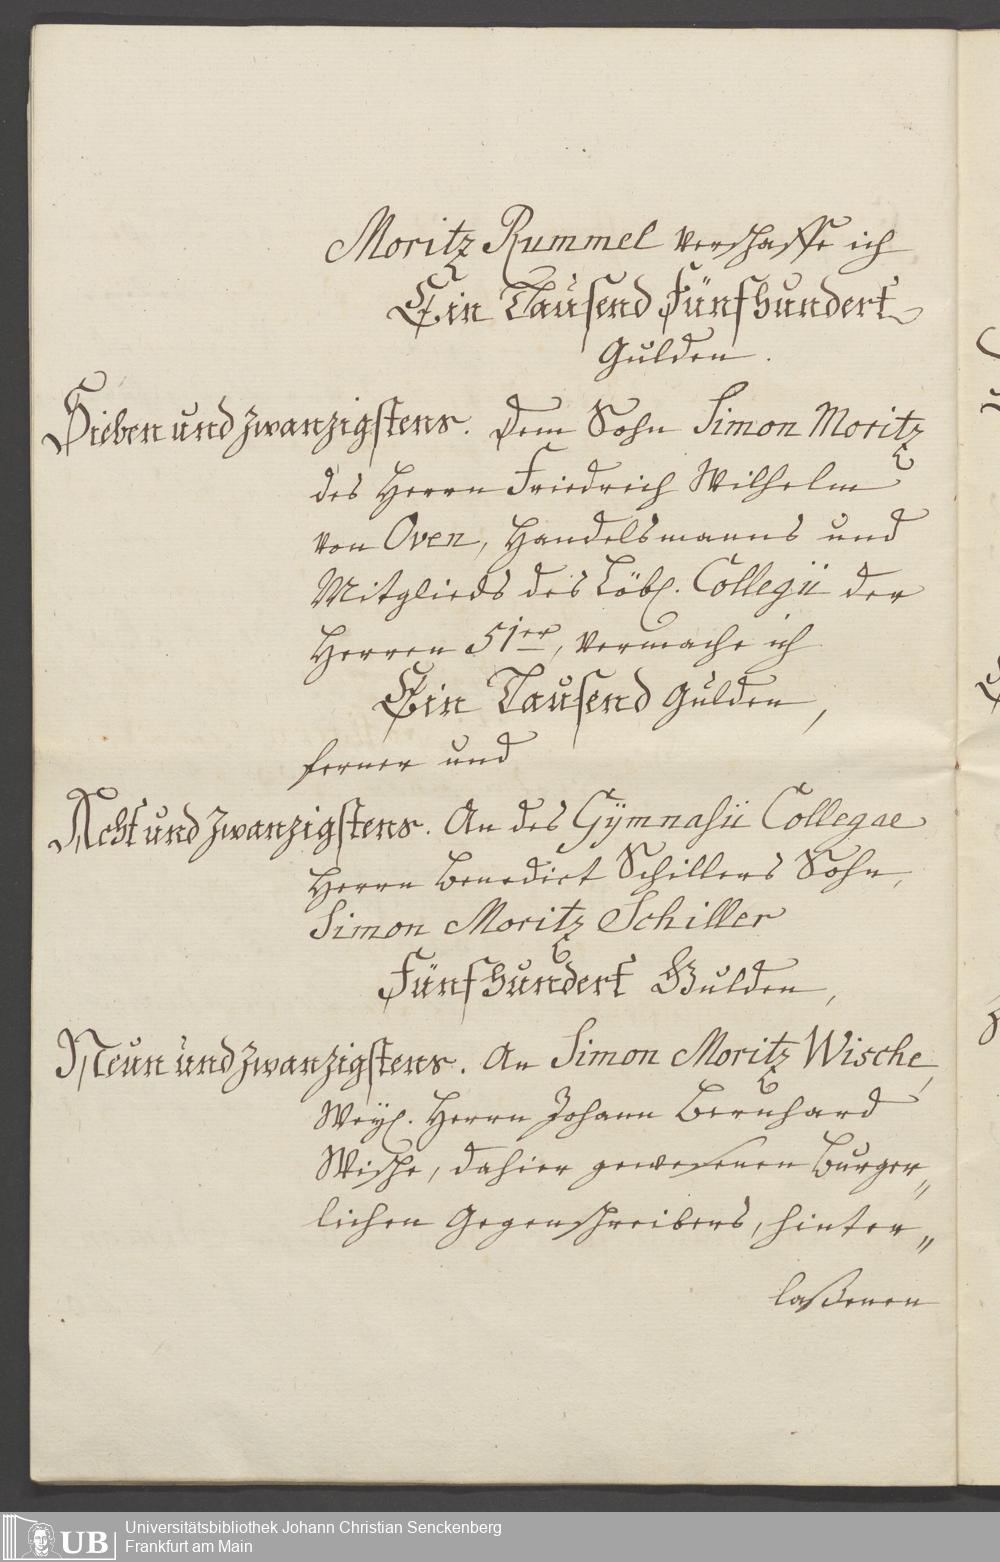 Moritz Rummel verschaffe ich
Ein Tausend Fünfhundert
Gulden.
Sieben und zwanzigstens. Dem Sohn Simon Moritz
des Herrn Friedrich Wilhelm
von Oven, Handelsmanns und
Mitglieds des Löbl. Collegii der
Herren 51er, vermache ich
Ein Tausend Gulden,
ferner und
Acht und zwanzigstens. An des Gÿmnasii Collegae
Herrn Benedict Schillers Sohn,
Simon Moritz Schiller
Fünfhundert Gulden,
Neun und zwanzigstens. An Simon Moritz Wische,
Weyl. Herrn Johann Bernhard
Wische, dahier gewesenen Burger„
lichen Gegenschreibers, hinter„
laßenen
UB Universitätsbibliothek Johann Christian Senckenberg
Frankfurt am Main